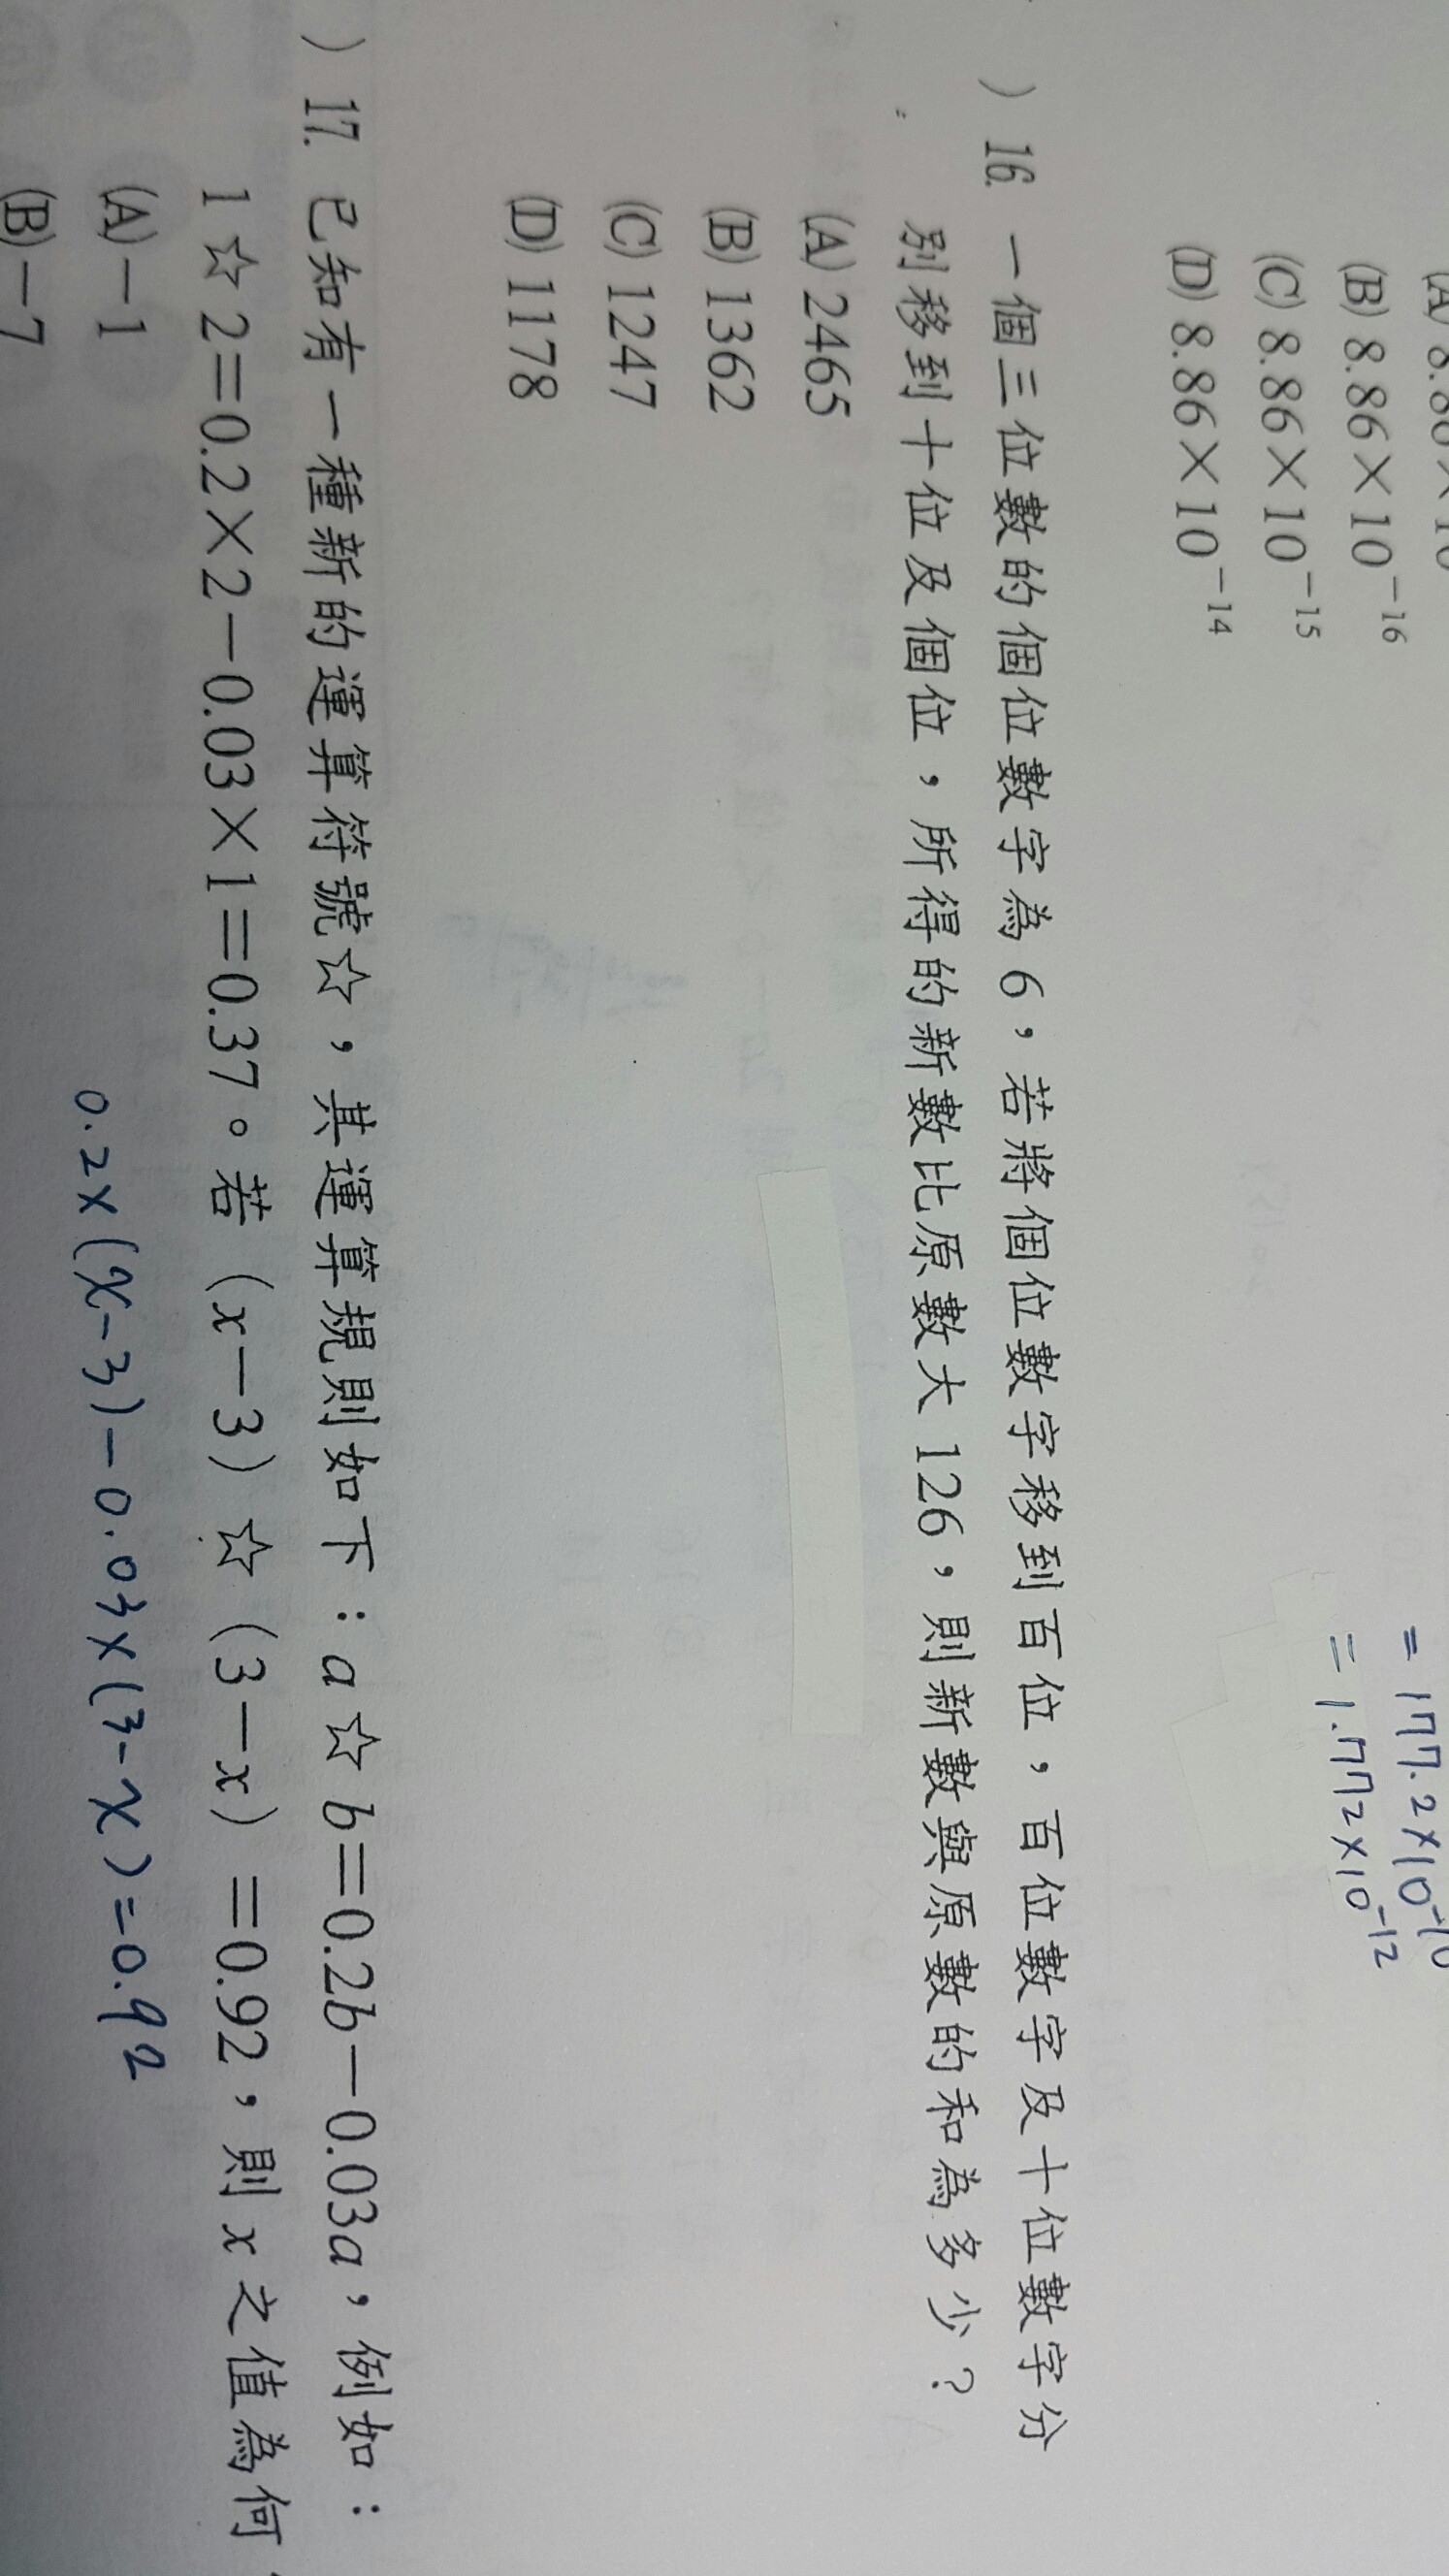 (B) 8.86×10⁻¹⁶
(C) 8.86×10⁻¹⁵
(D) 8.86×10⁻¹⁴
= 177.2×10⁻¹⁰
= 1.772×10⁻¹²
) 16. 一個三位數的個位數字為 6，若將個位數字移到百位，百位數字及十位數字分
別移到十位及個位，所得的新數比原數大 126，則新數與原數的和為多少？
(A) 2465
(B) 1362
(C) 1247
(D) 1178
) 17. 已知有一種新的運算符號☆，其運算規則如下：a☆b=0.2b－0.03a，例如：
1☆2=0.2×2－0.03×1=0.37。若（x－3）☆（3－x）=0.92，則 x 之值為何
(A)－1
(B)－7
0.2×(x-3)-0.03×(3-x)=0.92